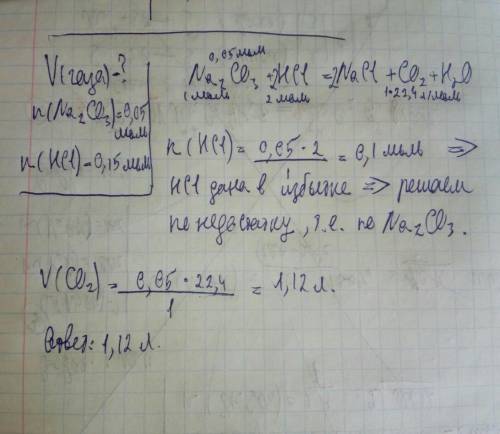 V(газа)-?
n(Na₂CO₃)=0,05 моль
n(HCl)=0,15 моль
0,05 моль
Na₂CO₃ + 2HCl = 2NaCl + CO₂ + H₂O
1 моль 2 моль 1•22,4 л/моль
n(HCl) = 0,05 • 2 = 0,1 моль =>
HCl дана в избытке => решаем
по недостатку, т.е. по Na₂CO₃.
V(CO₂) = 0,05 • 22,4 = 1,12 л.
1
Ответ: 1,12 л.